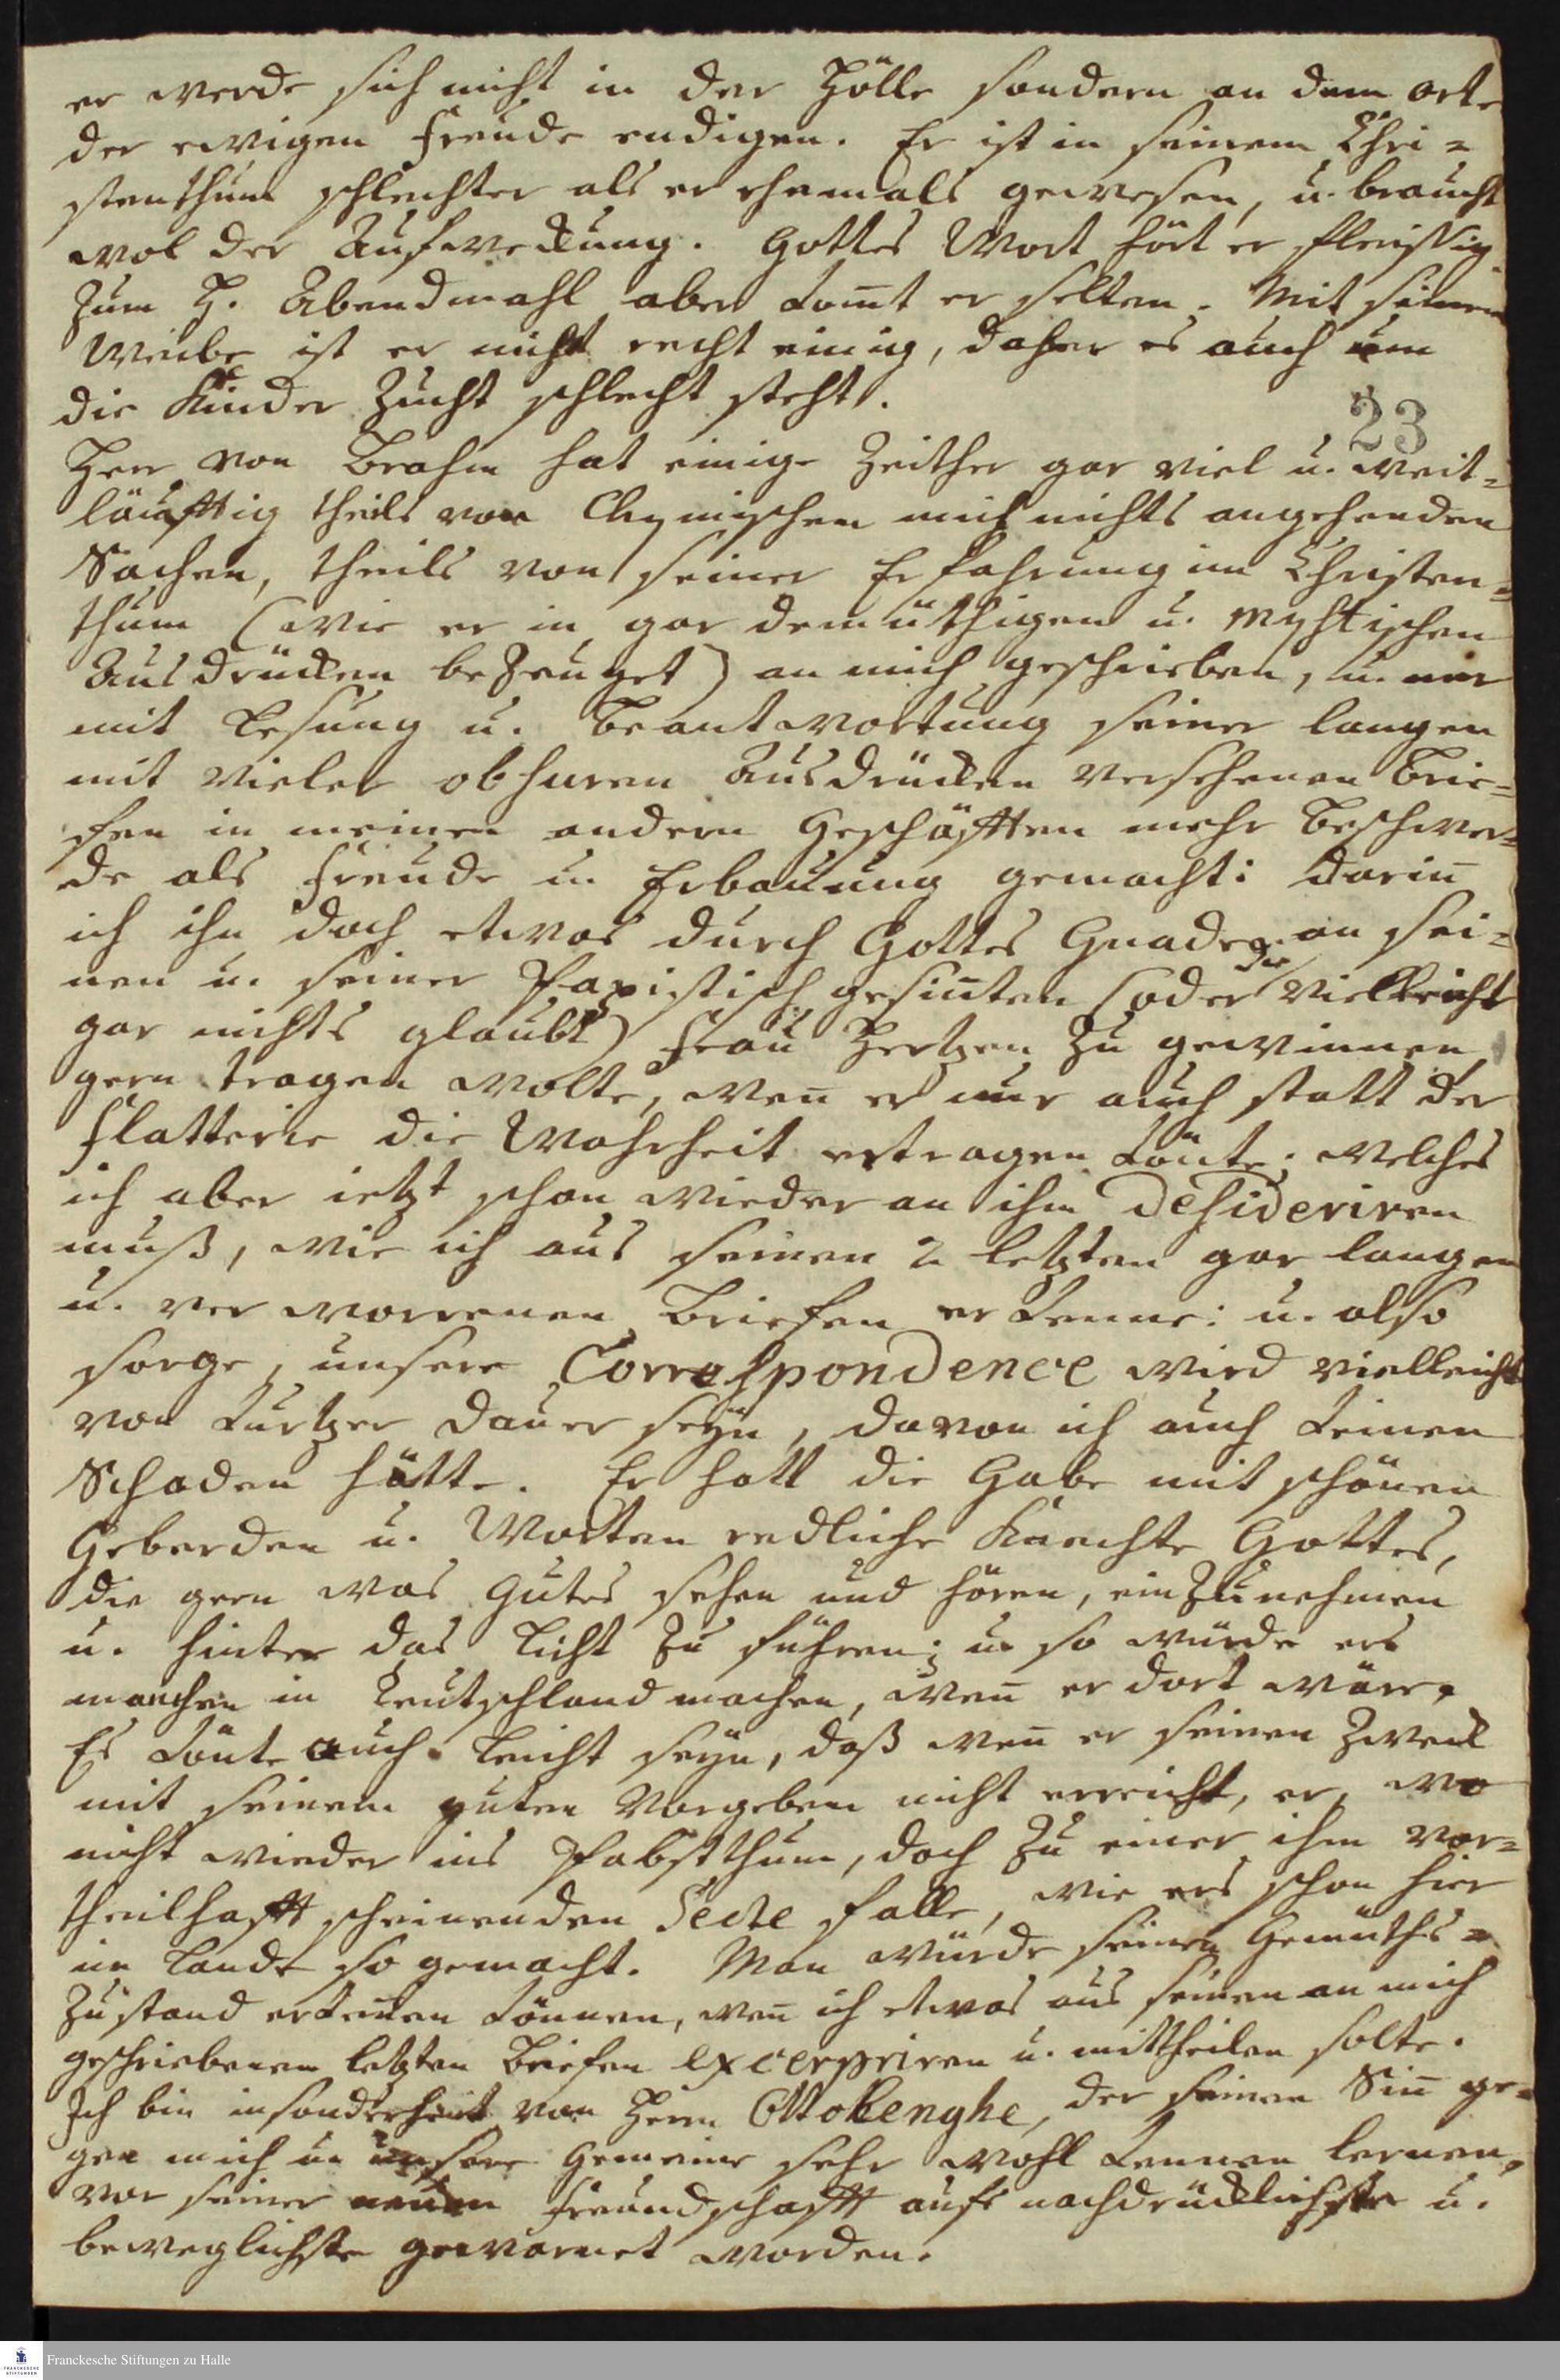 er werde sich nicht in der Hölle sondern an dem Orte
der ewigen Freude endigen. Er ist in seinem Chri=
stenthum schlechter als er ehemals gewesen, u. braucht
wol der Aufweckung. Gottes Wort hört er fleissig
zum H. Abendmahl aber komt er selten. Mit seinem
Weibe ist er nicht recht einig, daher es auch um
die Kinder Zucht schlecht steht.
23
Herr von Brahm hat einige Zeither gar viel u. weit=
läufftig theils von Chymischen mich nichts angehenden
Sachen, theils von seiner Erfahrung im Christen=
thum (wie er in gar demüthigen u. mystischen
Ausdrücken bezeuget) an mich geschrieben, u. mir
mit Lesung u. Beantwortung seiner langen
mit vielen obscuren Ausdrücken versehenen Brie=
fen in meinen andern Geschäfften mehr Beschwer=
de als Freude u. Erbauung gemacht: darin
ich ihn doch etwas durch Gottes Gnade an sei=
nen u. seiner Papistisch gesinten (oder die vielleicht
gar nichts glaubt) Frau Hertzen zu gewinnen
gern tragen wolte, wen er nur auch statt der
Flatterie die Wahrheit ertragen könte; welches
ich aber ietzt schon wieder an ihm desideriren
muß, wie ich aus seinen 2 letzten gar langen
u. verworrenen Briefen erkenne: u. also
sorge, unsere Correspondence wird vielleicht
von kurtzer Dauer seyn, davon ich auch keinen
Schaden hätte. Er hatt die Gabe mit schönen
Geberden u. Worten redliche Knechte Gottes,
die gern was Gutes sehen und hören, einzunehmen
u. hinter das Licht zu führen; u. so würde ers
manchen in Teutschland machen, wen er dort wäre.
Es könte auch leicht seyn, daß wen er seinen Zweck
mit seinem guten Vorgeben nicht erreicht, er, wo
nicht wieder ins Pabstthum, doch zu einer ihm vor=
theilhafft scheinenden Secte falle, wie ers schon hier
im Lande so gemacht. Man würde seinen Gemüths=
Zustand erkenen können, wen ich etwas aus seinen an mich
geschriebenen letzten Briefen excerpiren u. mittheilen solte.
Ich bin insonderheit von Herrn Ottolenghe, der seinen Sin ge=
gen mich u. unsere Gemeine sehr wohl kennen lernen,
vor seiner neuen Freundschafft aufs nachdrücklichste u.
beweglichste gewarnet worden.
Franckesche Stiftungen zu Halle